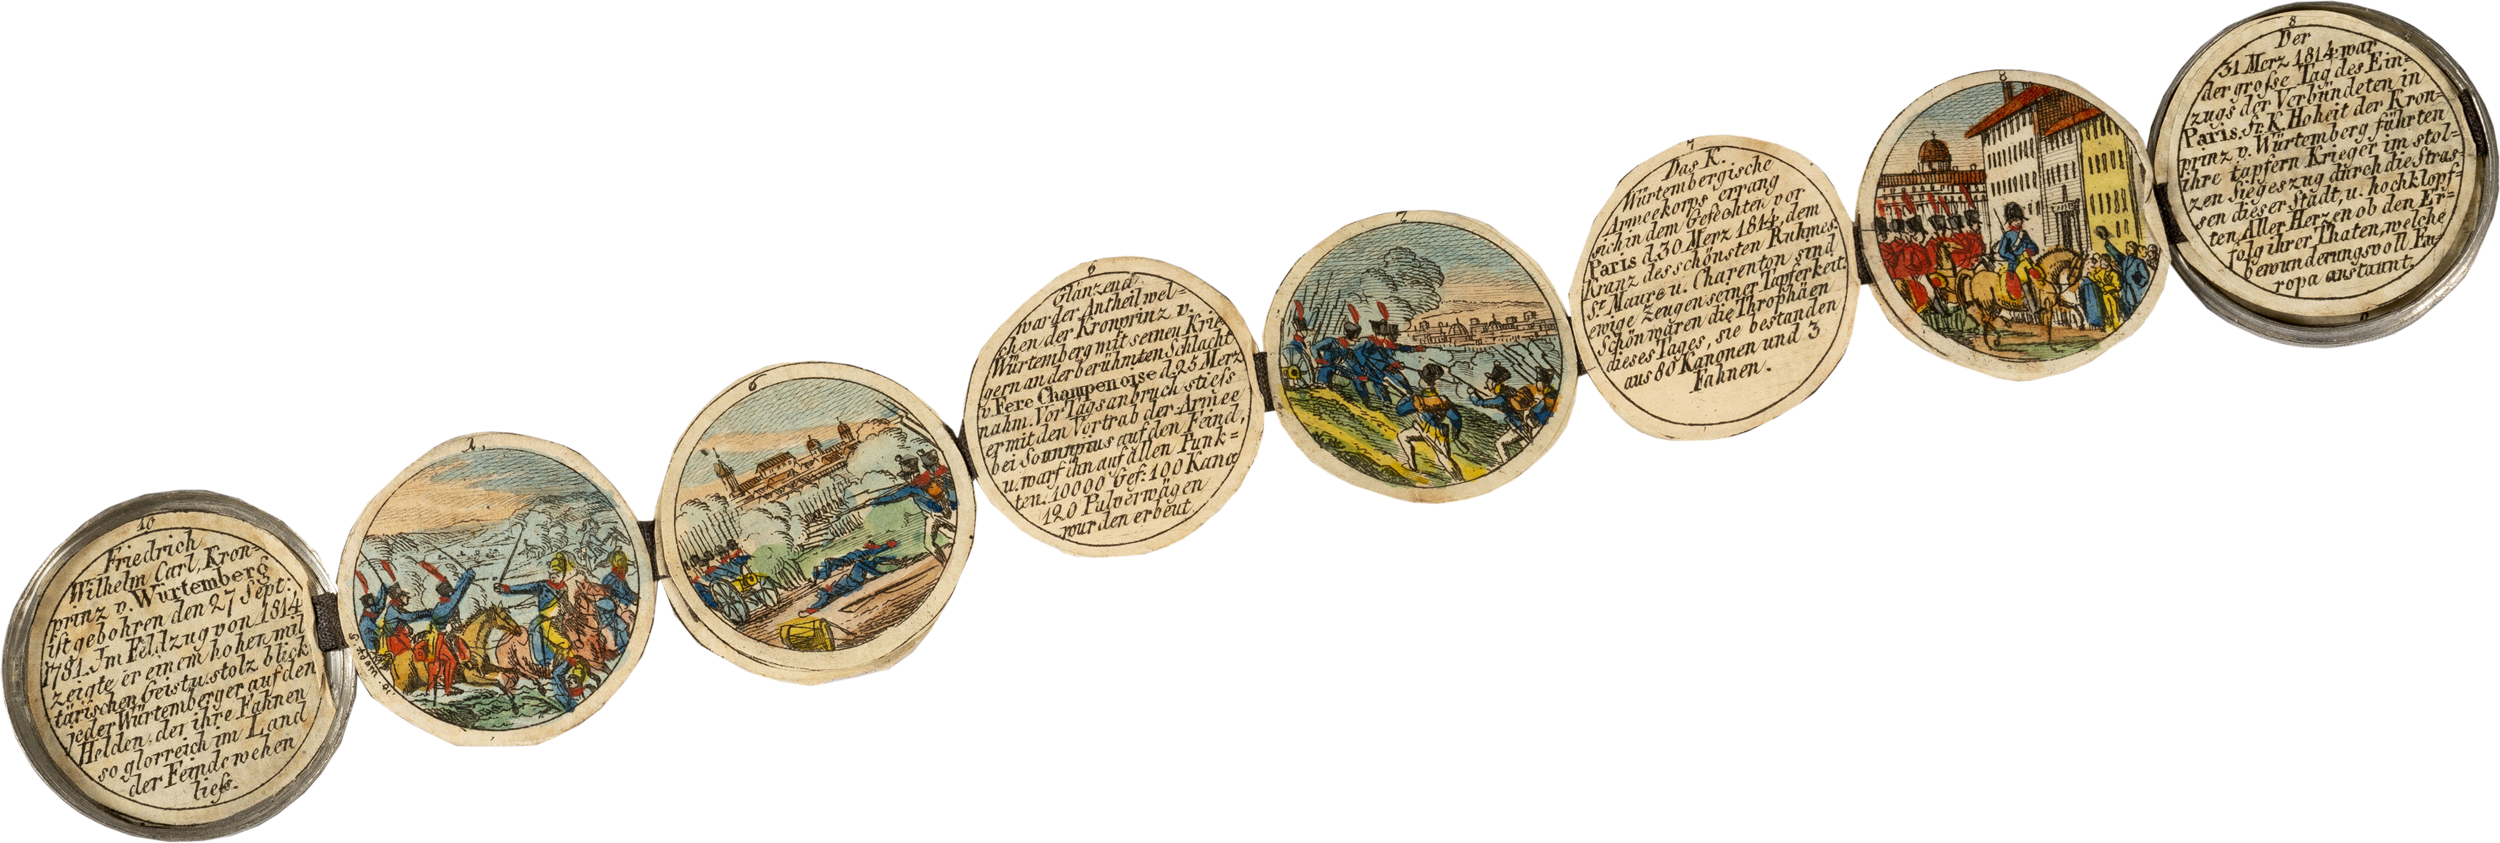 10
Friedrich
Wilhelm Carl, Kron-
prinz v. Würtemberg
ist gebohren den 27 Sept:
1781. Im Feldzug von 1814
zeigte er einem hohen mil
tärischen Geist u. stolz blick
jeder Würtemberger auf den
Helden, der ihre Fahnen
so glorreich im Land
der Feinde wehen
liess.
1,
6
6
Glänzend
war der Antheil wel-
chen der Kronprinz v.
Würtemberg mit seinen Krie-
gern an der berühmten Schlacht
v. Fere Champenoise d. 25 Merz
nahm. Vor Tagsanbruch stiess
er mit den Vortrab der Armee
bei auf den Feind,
u. warf ihn auf allen Punk=
ten. 10000 Gef: 100 Kano
120 Pulverwägen
wurden erbeut.
7
7
Das K.
Würtembergische
Armeekorps errang
sich in dem Gefechten vor
Paris d. 30 Merz 1814, dem
Kranz des schönsten Ruhmes.
St. Maure u. Charenton sind
ewige Zeugen seiner Tapferkeit.
Schön waren die Throphäen
dieses Tages, sie bestanden
aus 80 Kanonen und 3
Fahnen.
8
8
Der
31 Merz 1814, war
der grosse Tag des Ein-
zugs der Verbündeten in
Paris. Sr. K. Hoheit der Kron-
prinz v. Würtemberg führten
ihre tapfern Krieger im stol=
zen Siegeszug durch die Stras-
sen dieser Stadt, u. hochklopf=
ten Aller Herzen ob den Er-
folg ihrer Thaten, welche
bewunderungsvoll Eu-
ropa anstaunt.